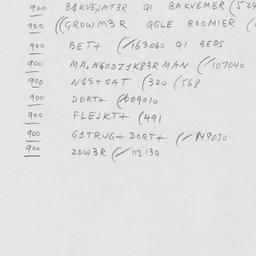 900 B1KVEJMT3R Q1 BAKVEMER (524
900 ((GROWM3R QGLE ROOMIER (
900 BET+ (/163060 Q1 BEDS
900 MA.NGODZ1K83R MAN (/107040
900 N1S+GAT (320 (568
900 DORT+ (/009010
900 FLEJKT+ (491
900 G1TRUG+ DORT+ (/149030
900 ZOW3R (/112130